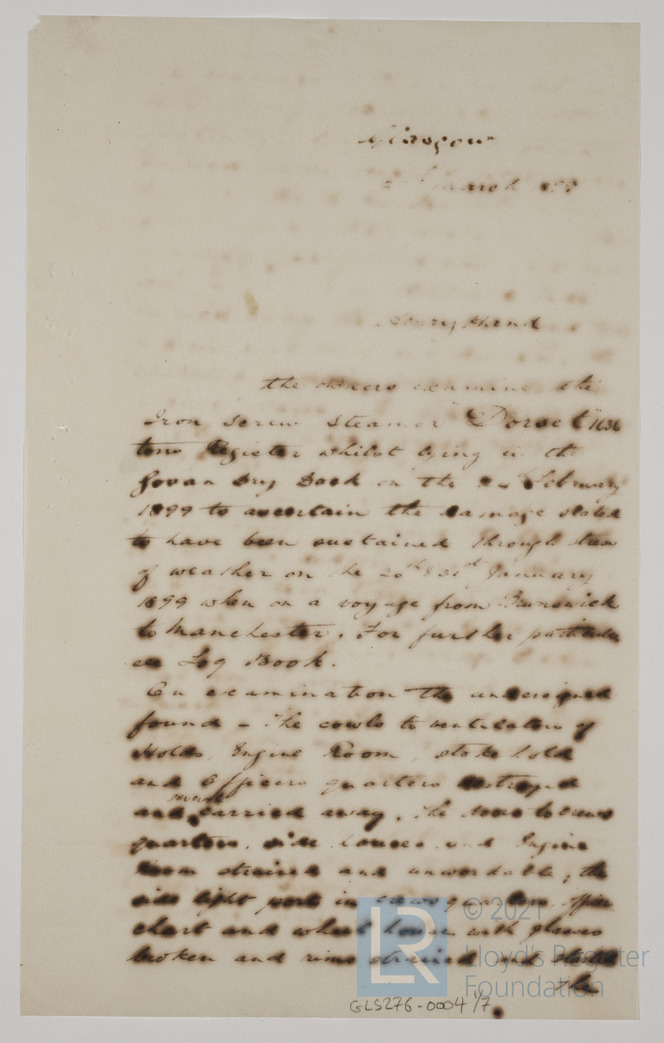 Glasgow
March 1899
Henry Shand
the owners examine the
Iron Screw Steamer "Dorset" 1636
tons Register whilst lying in the
Govan Dry Dock on the February
1899 to ascertain the damage stated
to have been sustained through stress
of weather on the 20th & 21st January
1899 when on a voyage from Brunswick
to Manchester. For further particulars
see Log Book.
On examination the undersigned
found - The cowls to ventilators of
Holds, Engine Room, stoke hold
and Officers quarters destroyed
and several carried away. The doors to crews
quarters, side houses and Engine
Room strained and unworkable, the
side light ports in crews quarters, officers
chart and wheel house with glasses
broken and rims strained and
GLS276-0004 1/7
LR
© 2021
Lloyd's Register
Foundation